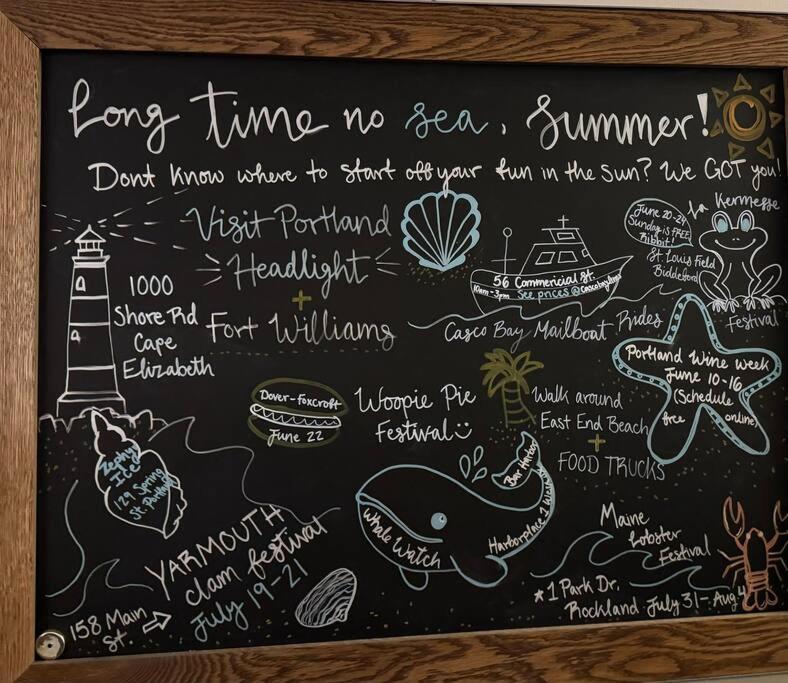 Long time no sea, Summer!
Dont know where to start off your fun in the sun? We GOT you!
Visit Portland
Headlight
+
Fort Williams
1000
Shore Rd
Cape
Elizabeth
56 Commercial St.
10am-3pm See prices @
Casco Bay Mailboat Rides
June 20-24
Sunday is FREE
Ribbit!
La Kermesse
St. Louis Field
Biddeford
Festival
Portland Wine Week
June 10-16
(Schedule
free online)
Dover-Foxcroft
June 22
Woopie Pie
Festival
Walk around
East End Beach
+
FOOD TRUCKS
129 Spring
St. Portland
YARMOUTH
clam festival
July 19-21
158 Main
St
Whale Watch
Harborplace 1 West St
Bar Harbor
Maine
Lobster
Festival
*1 Park Dr.
Rockland July 31-Aug 4